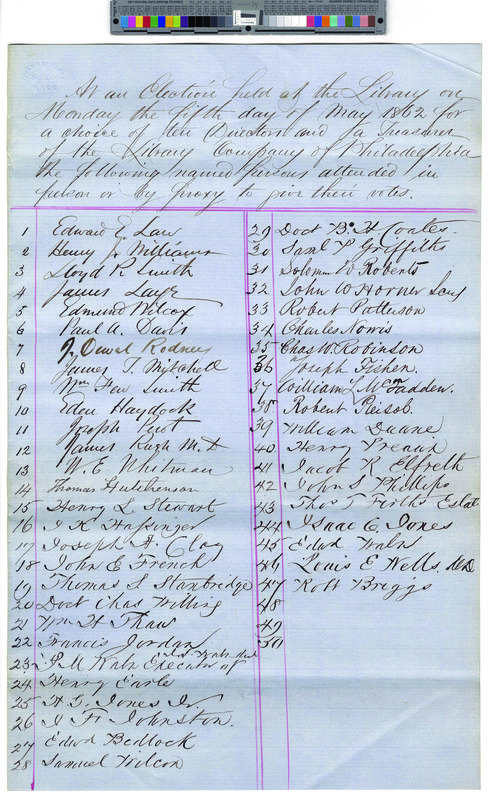 At an Election held at the Library on
Monday the fifth day of May 1862 for
a choice of ten Directors and a Treasurer
of the Library Company of Philadelphia
the following named persons attended in
person or by proxy to give their votes.
1 Edward E. Law
2 Henry J. Williams
3 Lloyd P. Smith
4 James
5 Edmund Wilcox
6 Paul A. Davis
7 Rodney
8 James T. Mitchell
9 Wm Few Smith
10 Eden Haydock
11 Joseph
12 James Rush M.D
13 W. E. Whitman
14 Thomas Hutchinson
15 Henry L. Stewart
16 I. K.
17 Joseph A. Clay
18 John E French
19 Thomas S Stanbridge
20 Doct Chas Willing
21 Wm H Thaw
22 Francis Jordan
23 Waln Executor of
24 Henry Earle
25 Jones Jr.
26 Johnston.
27 Edwd Bedlock
28 Samuel Wilcox
29 Doct B. H Coates.
30 Saml P Griffiths
31 Solomon W Roberts
32 John W Horner
33 Robert Patterson
34 Charles Norris
35 Chas W. Robinson
36 Joseph Fisher.
37 William L McFadden.
38 Robert
39 William Duane
40 Henry
41 Jacob R Elfreth
42 John S Phillips
43 Thos T Firths Estate
44 Isaac C Jones
45 Edwd Waln
46 Louis E Wells.
47 Robt Briggs
48
49
50